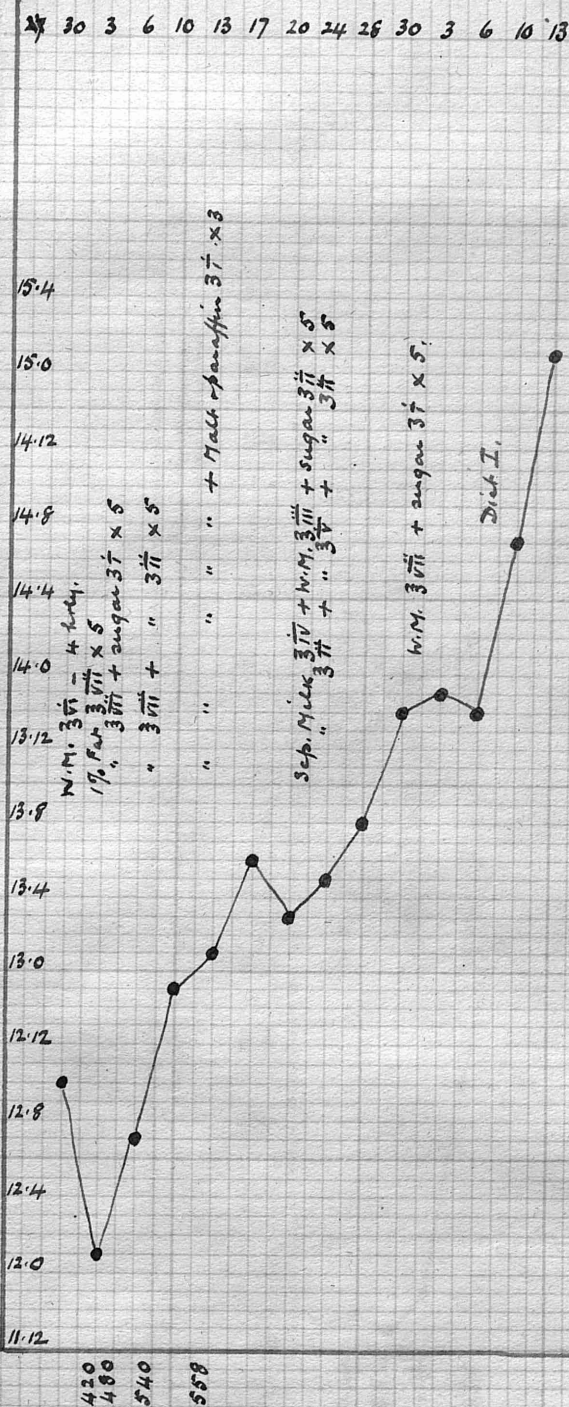 27 30 3 6 10 13 17 20 24 28 30 3 6 10 13
15.4
15.0
14.12
14.8
14.4
14.0
13.12
13.8
13.4
13.0
12.12
12.8
12.4
12.0
11.12
W.M. ℥vi – 4 hrly.
1% Fat ℥vii × 5
" ℥vii + sugar ʒi × 5
" ℥vii + " ʒii × 5
" " " " " + Malt & paraffin ʒi × 3
Sep. Milk ℥iv + W.M. ℥iii + sugar ʒii × 5
" ℥ii + " ℥v + " ʒii × 5
W.M. ℥vii + sugar ʒi × 5.
Diet I.
420
480
540
558